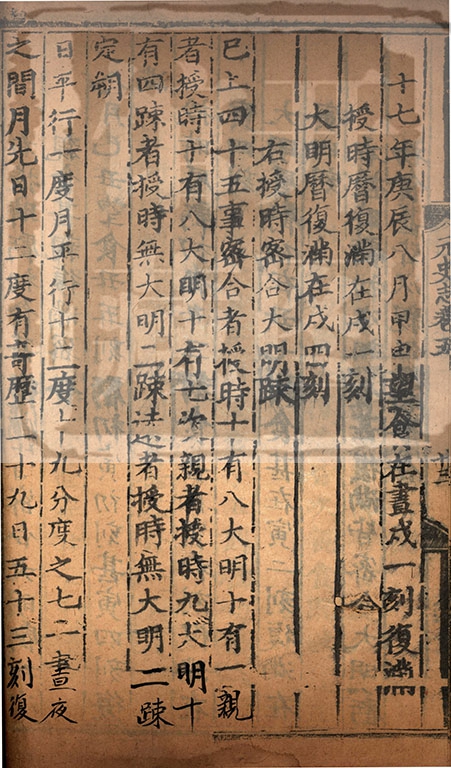 十七年庚辰八月甲申望食在晝戌一刻復滿
授時曆復滿在戌一刻
大明曆復滿在戌四刻
右授時密合大明疎
已上四十五事密合者授時十有八大明十有一親
者授時十有八大明十有七次親者授時九大明十
有四疎者授時無大明二疎遠者授時無大明二疎
定朔
日平行一度月平行十三度十九分度之七一晝夜
之間月先日十二度有奇歷二十九日五十三刻復
元史志卷五